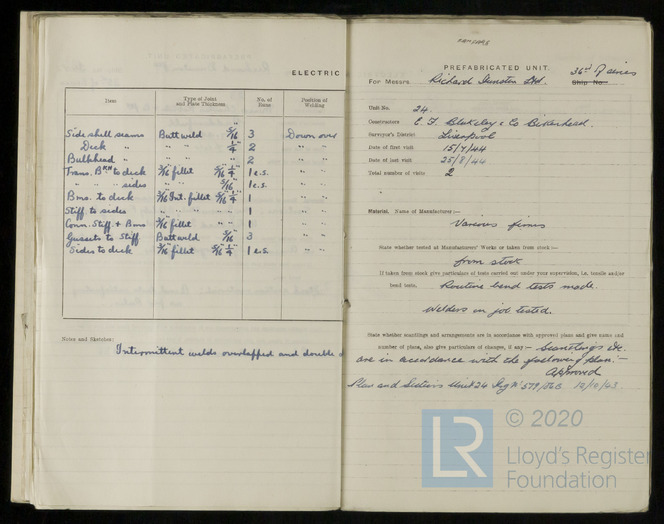 ELECTRIC
Item Type of Joint and Plate Thickness No. of Runs Position of Welding
Side shell seams Butt weld 5/16" 3 Down over
Deck " " " 1/4" 2 " "
Bulkhead " " " " 2 " "
Trans. BKH to deck 3/16 fillet 5/16" 1/4" 1 e.s. " "
" " " sides " " 5/16" 1 e.s. " "
Bms. to deck 3/16 Int. fillet 5/16" 1/4" 1 " "
Stiff to sides " " " " 1 " "
Conn. Stiff. & Bms 3/16 fillet " " 1 " "
Gussets to Stiff Butt weld 5/16 3 " "
Sides to deck 3/16 fillet 5/16" 1/4" 1 e.s. " "
Notes and Sketches:
Intermittent welds overlapped and double
PREFABRICATED UNIT.
For Messrs. Richard Dunston Ltd. Ship No.
Unit No. 24.
Constructors & Co Birkenhead.
Surveyor's District Liverpool
Date of first visit 15/7/44
Date of last visit 25/8/44
Total number of visits 2
Material. Name of Manufacturer:—
Various firms
State whether tested at Manufacturers' Works or taken from stock:—
from stock
If taken from stock give particulars of tests carried out under your supervision, i.e. tensile and/or
bend tests. Routine bend tests made.
Welders on job tested.
State whether scantlings and arrangements are in accordance with approved plans and give name and
number of plans, also give particulars of changes, if any:— Scantlings Etc.
are in accordance with the following plan:—
Approved
Plan and Sections Unit 24 12/10/43.
© 2020
LR Lloyd's Register
Foundation